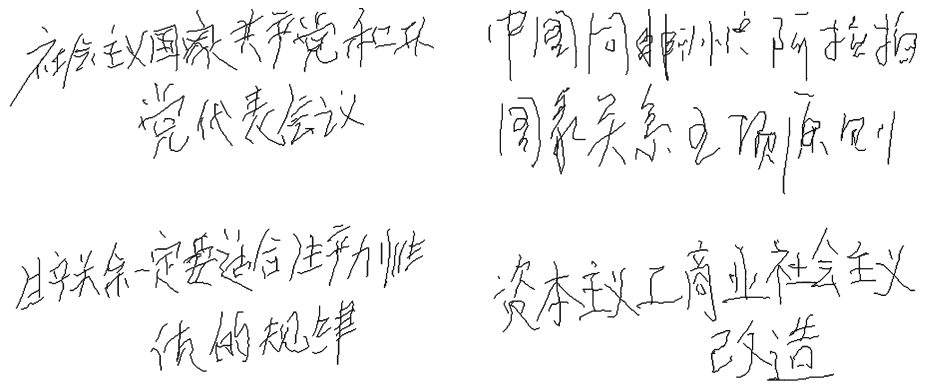 社会主义国家共产党和工人
党代表会议
中国同非洲和阿拉伯
国家关系五项原则
生产关系一定要适合生产力性
质的规律
资本主义工商业社会主义
改造